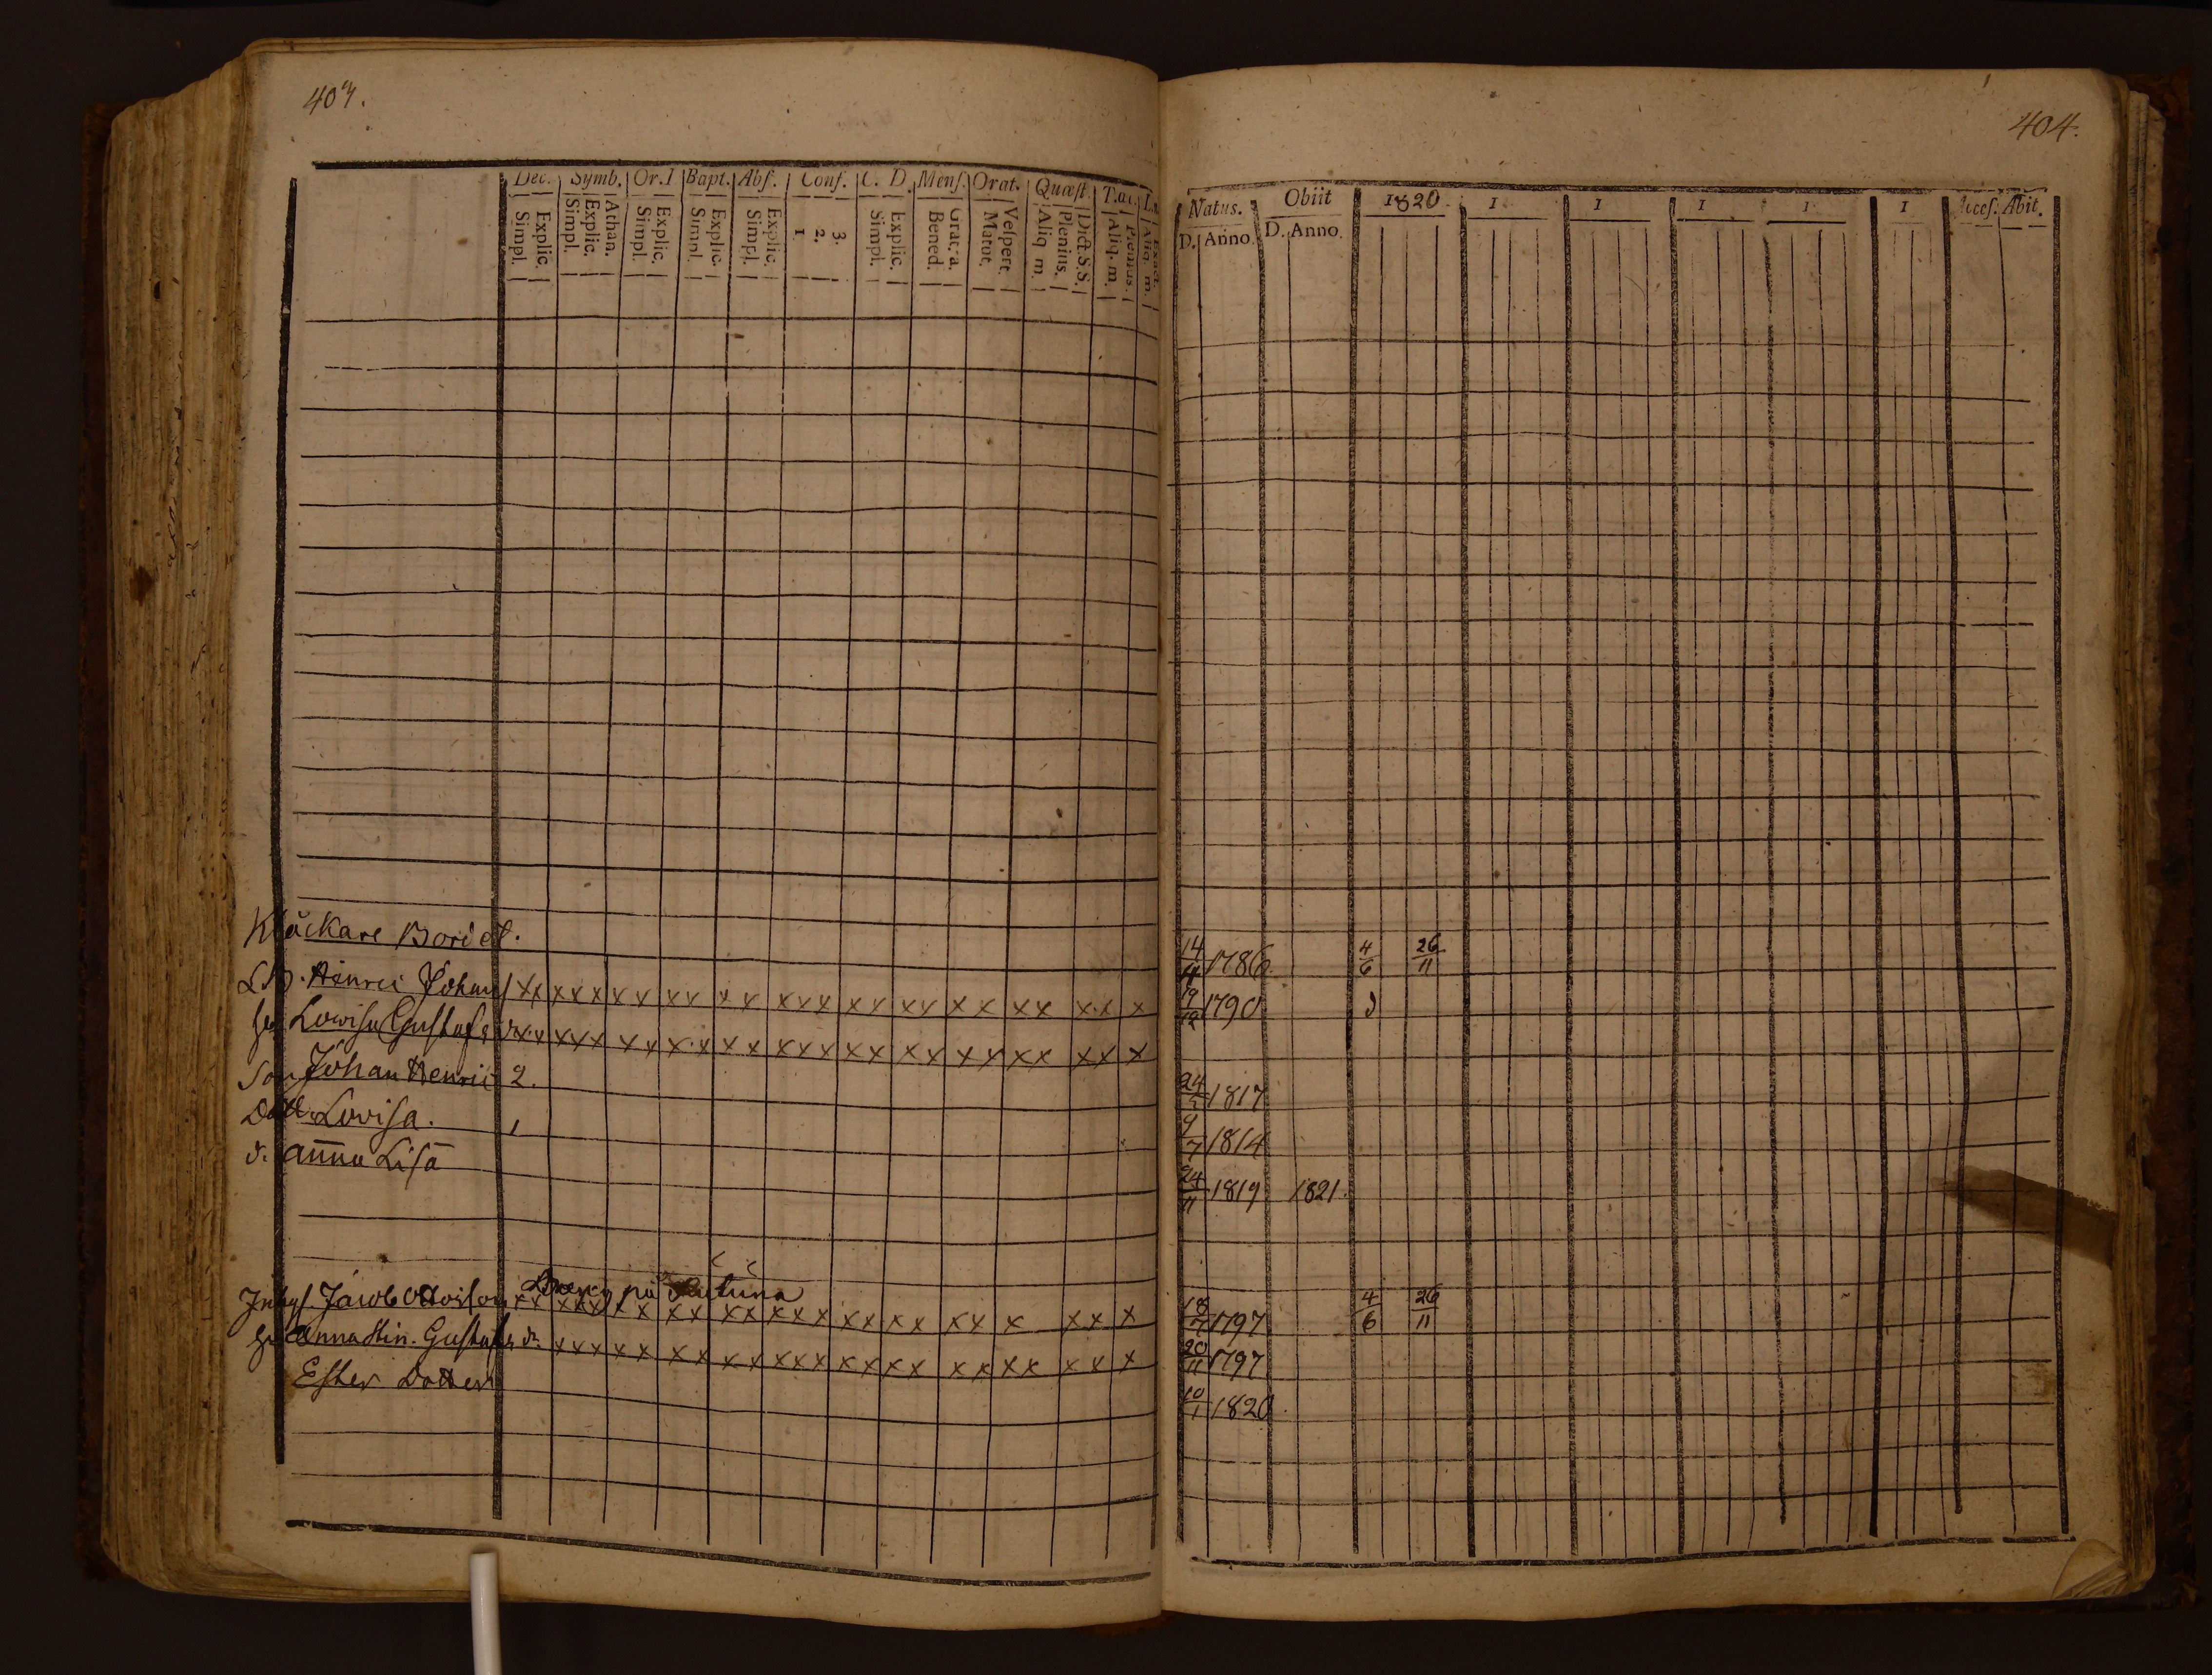 404.
Dec. Symb. Or. I Bapt. Abs. Conf. C. D. Mens. Orat. Quæst. T.
Explic. Simpl. Athan. Explic. Simpl. Explic. Simpl. Explic. Simpl. Explic. Simpl. 3. 2. 1. Explic. Simpl. Bened. Vespert. Matut. Dict. S. S. Plenius. Aliq. m. Plenius. Aliq. m. Aliq. m.
Natus. Obiit 1820 1 1 1 1 1 Acces. Abit.
D. Anno. D. Anno.
Klåckare Bordet.
Henric Johans x x x x x x x x x x x x x x x x x x x x x x x x x 14 1786 4/6 26/11
Lovisa Gustafs dr x x x x x x x x x x x x x x x x x x x x x x x x 19/12 1790
Son Johan Henric 2. 24 1817
Dott. Lovisa. 1 9/7 1814
d. Anna Lisa 24/11 1819 1821.
på
Inhys. Jacob Ottoson x x x x x x x x x x x x x x x x x x x x x x x x 18/7 1797 4/6 26/11
hu Anna Stin. Gustafs dr. x x x x x x x x x x x x x x x x x x x x x x x x 20/11 1797
Ester Dotter 10/1 1820.